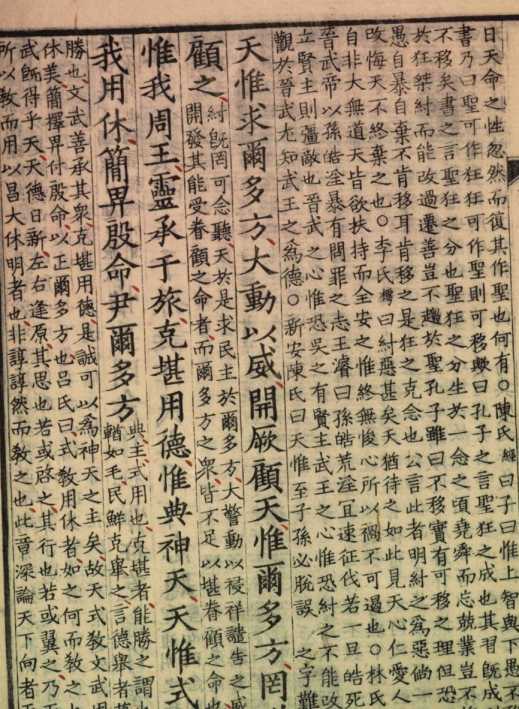 日天命之性忽然而復其作聖也何有○陳氏經曰子曰惟上智與下愚不移
書乃曰聖可作狂狂可作聖則可移歟曰孔子之言聖狂之成也其習旣成
不移矣書之言聖狂之分也聖狂之分生於一念之頃堯舜而忘兢業豈不
其狂桀紂而能改過遷善豈不趨於聖孔子雖曰不移實有可移之理但恐
愚自暴自棄不肯移耳肯移之是狂之克念也公言此者明紂之爲惡倘一
改悔天不終棄之也○李氏樗曰紂惡甚矣天猶待之如此見天心仁愛人
自非大無道天皆欲扶持而全安之惟終無悛心所以禍不可遏也○林氏
晉武帝以孫皓淫暴有問罪之志王濬曰孫皓荒淫宜速征伐若一旦皓死
立賢主則彊敵也晉武之心惟恐吳之有賢主武王之心惟恐紂之不能改
觀於晉武尤知武王之爲德○新安陳氏曰天惟至子孫必脫誤 之字難
天惟求爾多方大動以威開厥顧天惟爾多方罔
顧之
紂旣罔可念聽天於是求民主於爾多方大警動以祲祥譴告之威
開發其能受眷顧之命者而爾多方之衆皆不足以堪眷顧之命也
惟我周王靈承于旅克堪用德惟典神天天惟式
我用休簡畀殷命尹爾多方
典主式用也克堪者能勝之謂也
輶如毛民鮮克舉之言德舉者莫
勝也文武善承其衆克堪用德是誠可以爲神天之主矣故天式敎文武用
休美簡擇畀付殷命以正爾多方也呂氏曰式敎用休者如之何而敎之也
武旣得乎天天德日新左右逢原其思也若或啓之其行也若或翼之乃天
所以敎而用以昌大休明者也非諄諄然而敎之也此章深論天下向者天